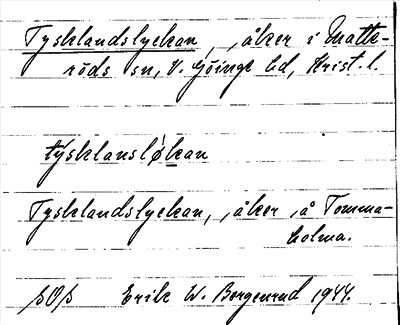 Tysklandslyckan, åker i Matte-
röds sn, V. Göinge hd, Krist. l.
týsklanslø̀kan
Tysklandslyckan, åker å Tomma-
holma.
Erik W. Bergenrud 1944.